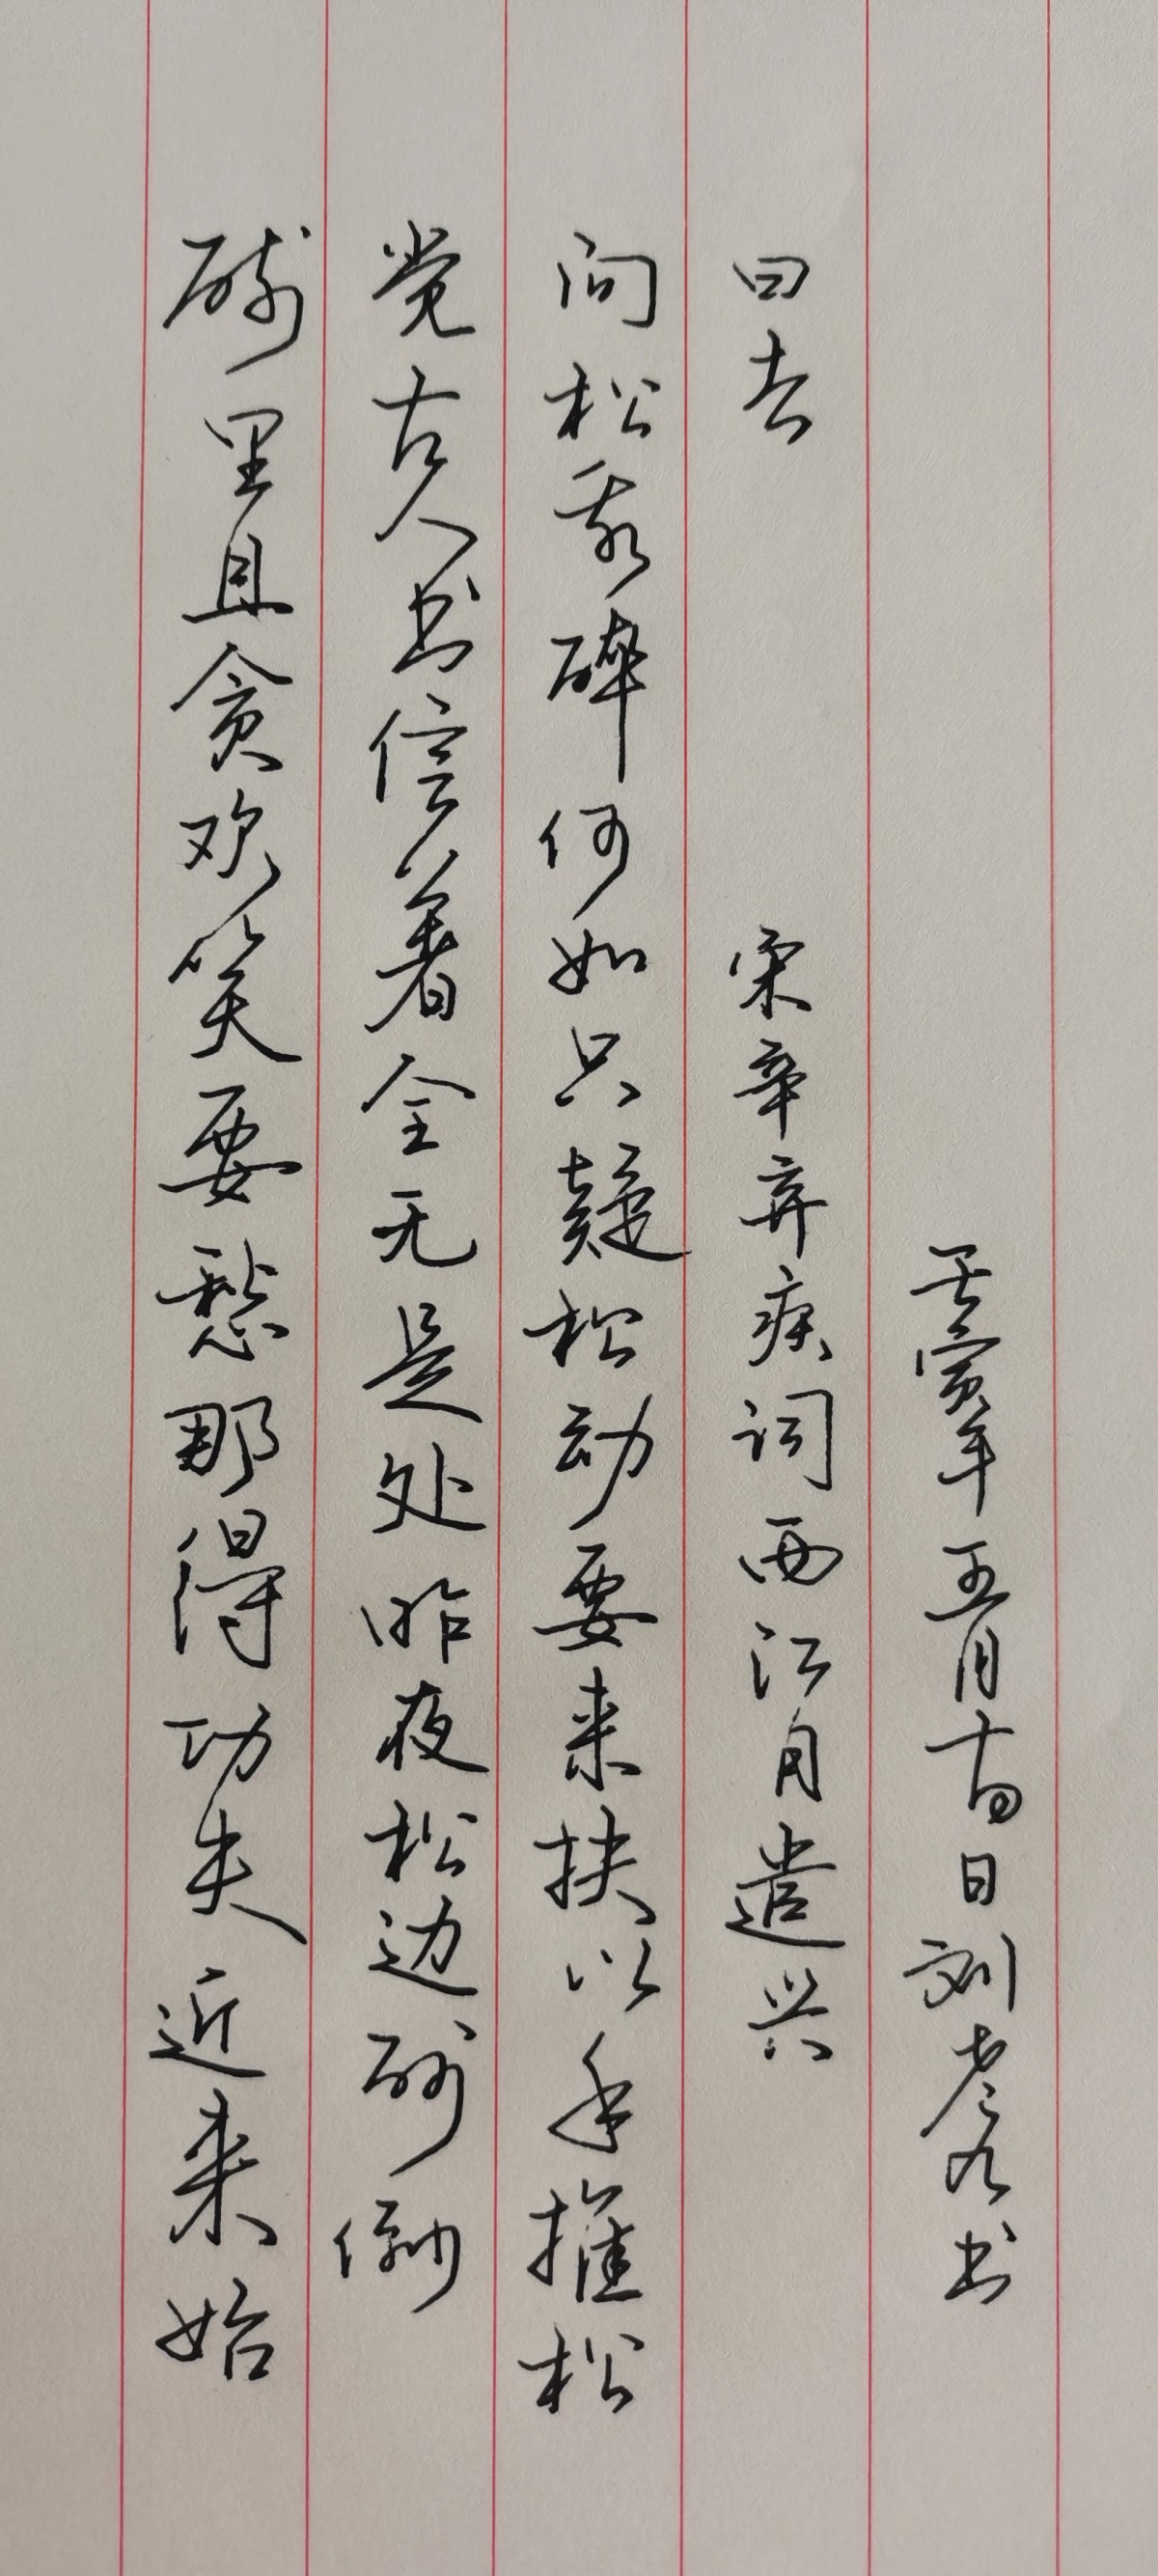 醉里且贪欢笑要愁那得功夫近来始
觉古人书信着全无是处昨夜松边醉倒
问松我醉何如只疑松动要来扶以手推松
曰去
宋辛弃疾词西江月遣兴
壬寅年五月十四日刘老九书